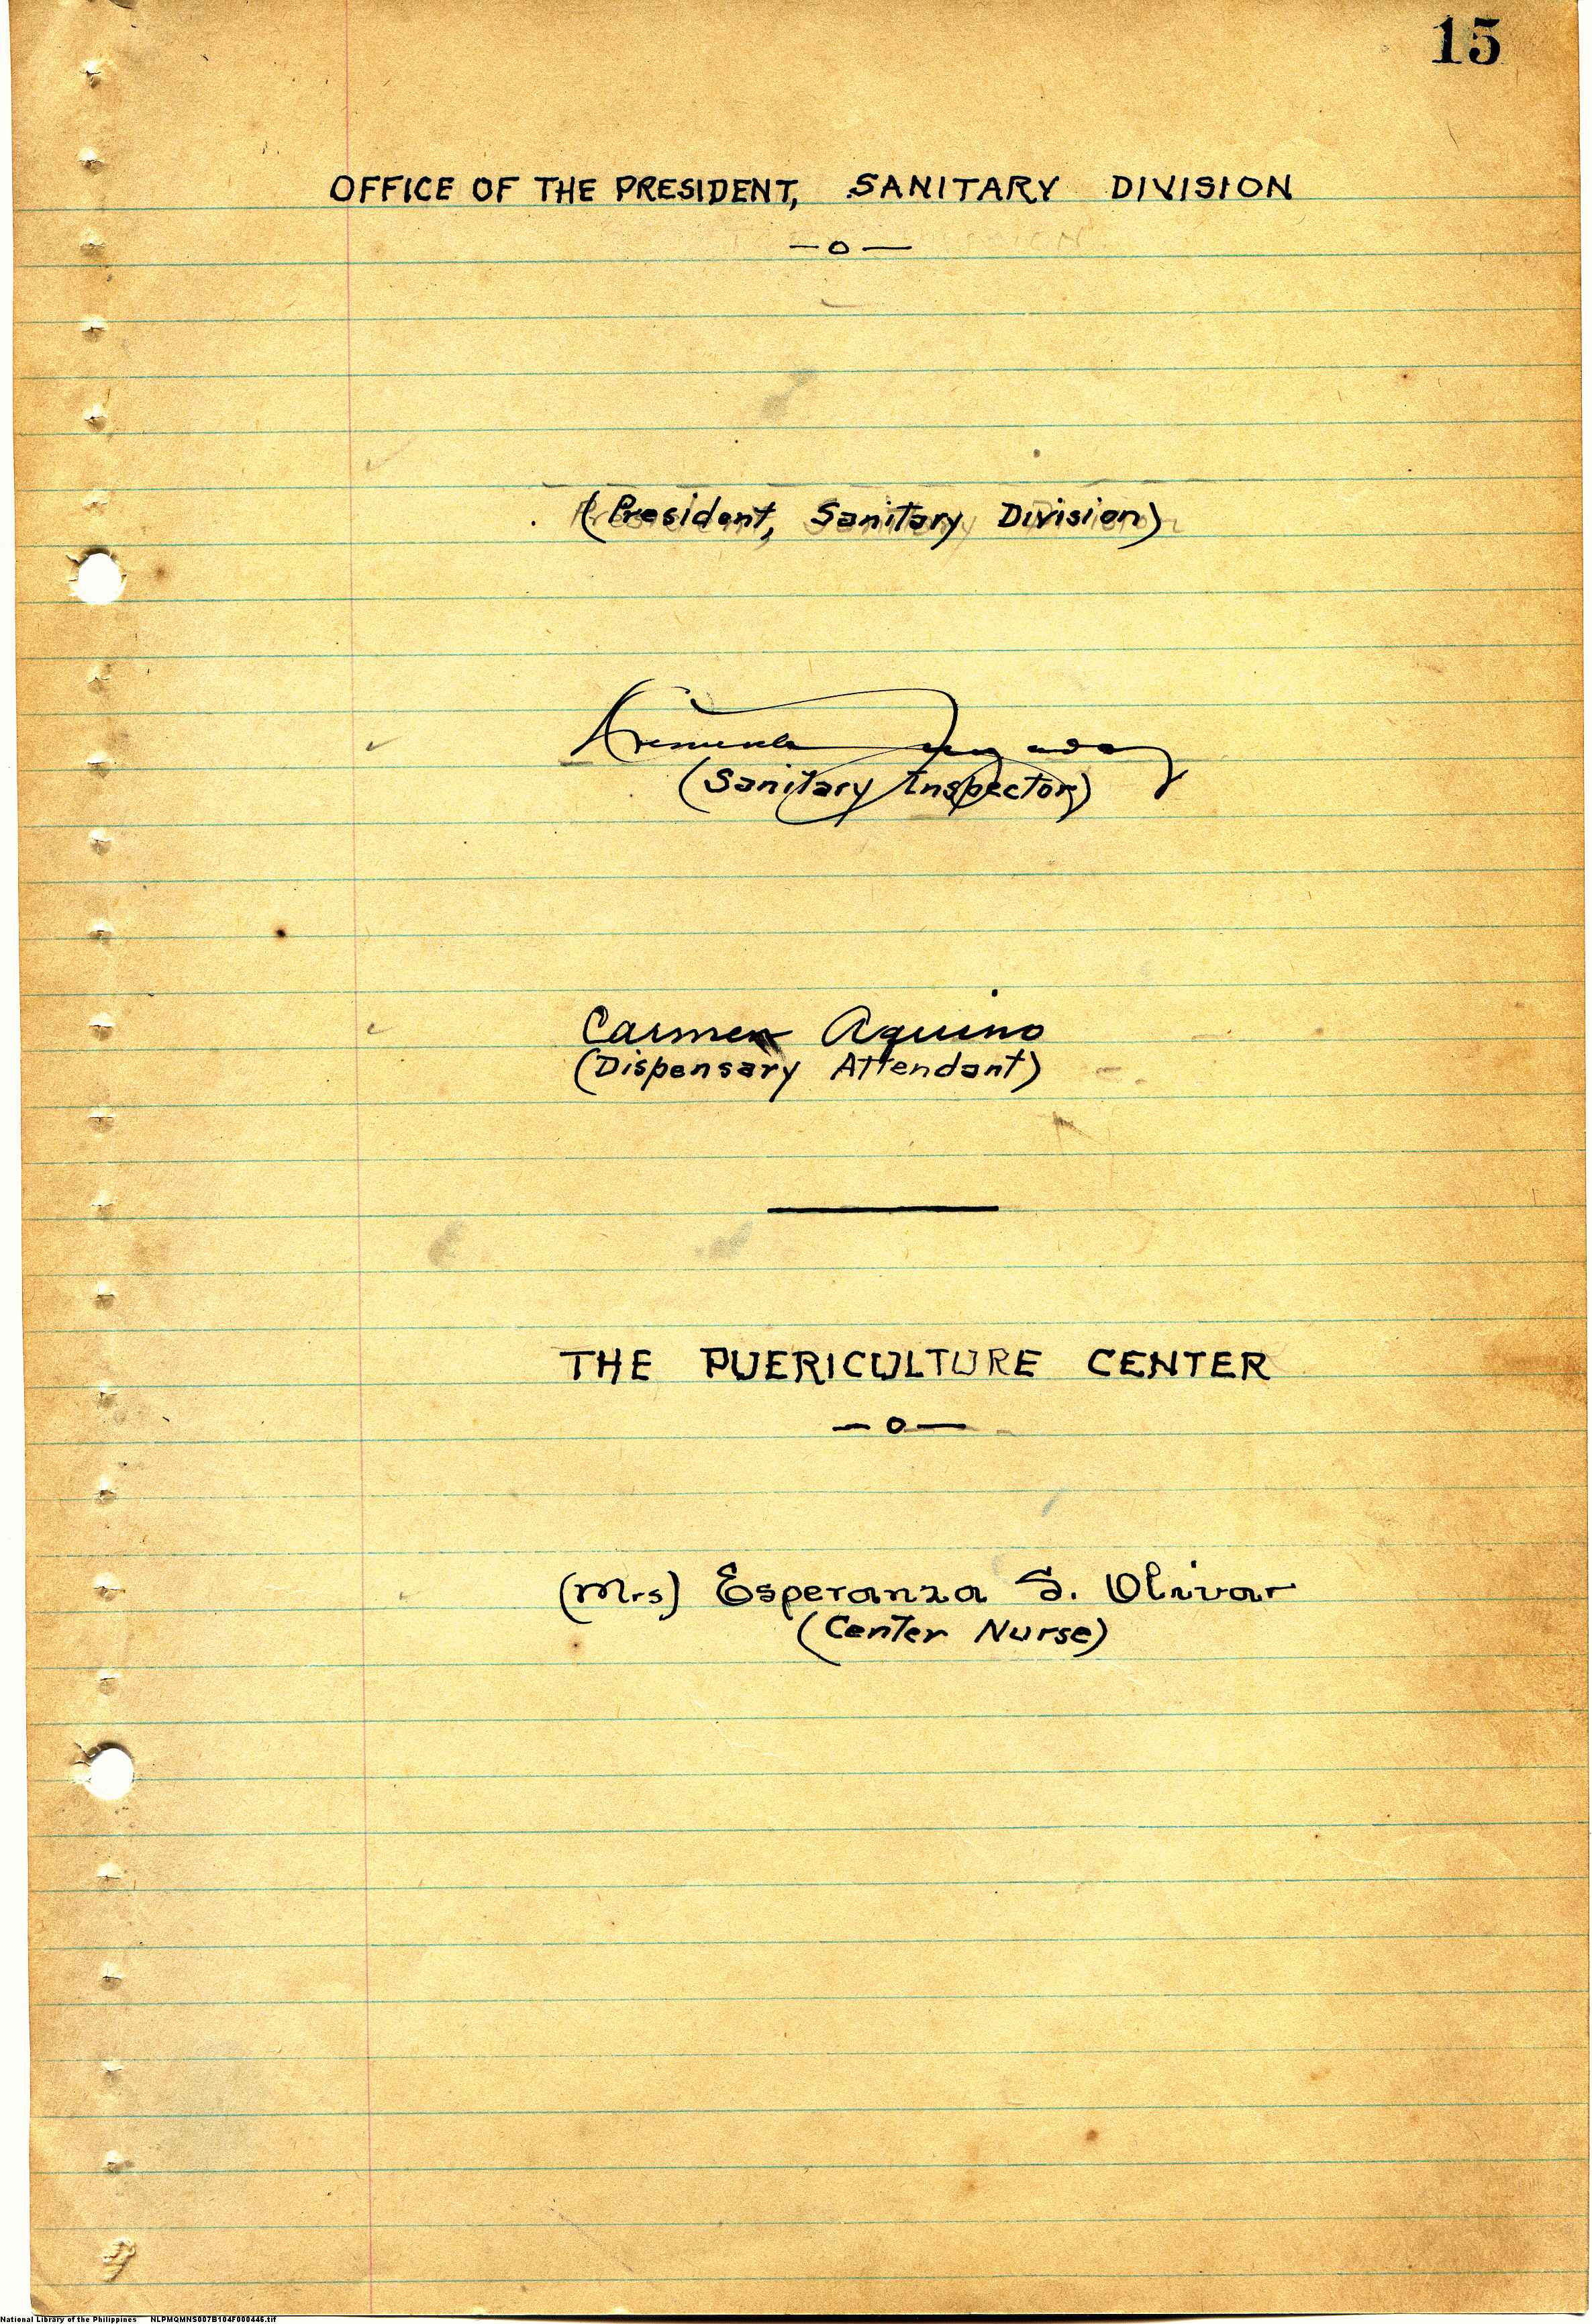 15
OFFICE OF THE PRESIDENT, SANITARY DIVISION
—o—
(President, Sanitary Division)
(Sanitary Inspector)
Carmen Aquino
(Dispensary Attendant)
THE PUERICULTURE CENTER
—o—
(Mrs) Esperanza S. Olivar
(Center Nurse)
National Library of the Philippines NLPMQMNS007B104F000446.tif